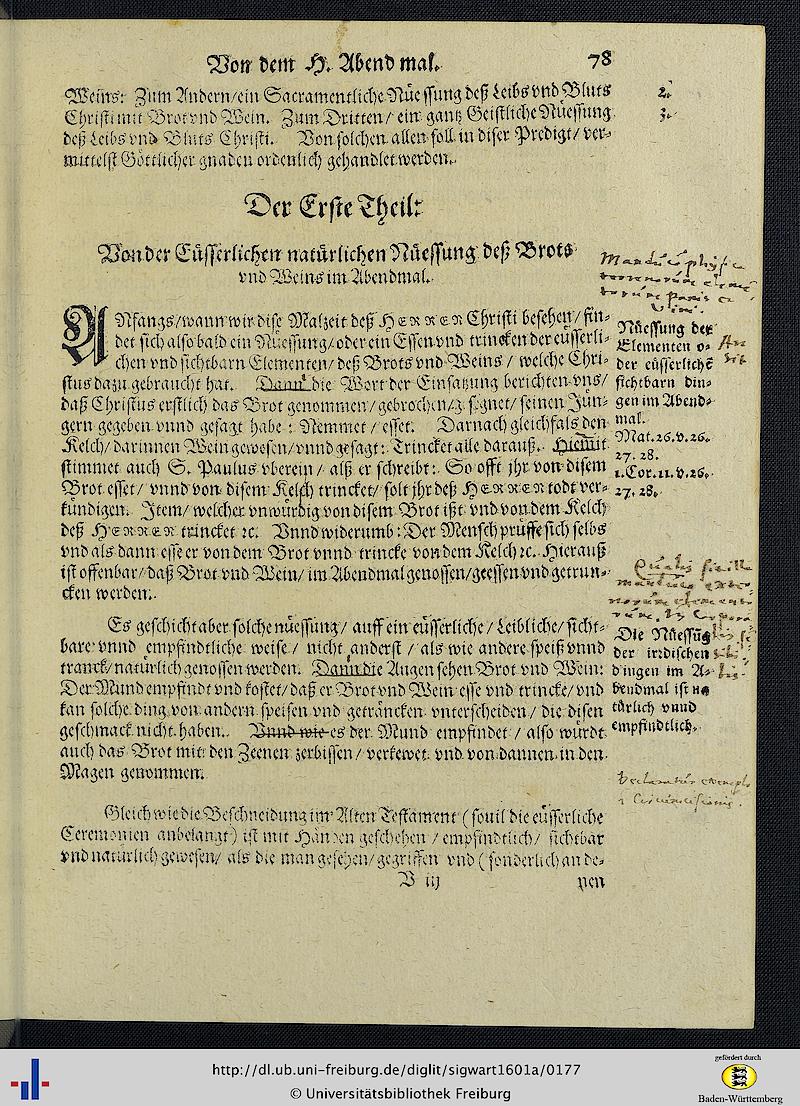 Von dem H. Abendmal.
78
Weins: Zum Andern/ein Sacramentliche Nüessung deß Leibs vnd Bluts
Christi mit Brot vnd Wein. Zum Dritten/ ein gantz Geistliche Nüessung
deß Leibs vnd Bluts Christi. Von solchen allen soll in diser Predigt/ ver-
mittelst Göttlicher gnaden ordenlich gehandlet werden.
2.
3.
Der Erste Theil:
Von der Eüsserlichen natürlichen Nüessung deß Brots
vnd Weins im Abendmal.
ANfangs/wann wir dise Malzeit deß HERREN Christi besehen/ fin-
det sich also bald ein Nüessung/oder ein Essen vnd trincken der eüsserli-
chen vnd sichtbarn Elementen/ deß Brots vnd Weins/ welche Chri-
stus dazu gebraucht hat. Dann die Wort der Einsatzung berichten vns/
daß Christus erstlich das Brot genommen/gebrochen/gesegnet/ seinen Jün-
gern gegeben vnnd gesagt habe: Nemmet/ esset. Darnach gleichfals den
Kelch/ darinnen Wein gewesen/vnnd gesagt: Trincket alle darauß. Hiemit
stimmet auch S. Paulus vberein/ alß er schreibt: So offt jhr von disem
Brot esset/ vnnd von disem Kelch trincket/ solt jhr deß HERREN todt ver-
kündigen. Item/ welcher vnwürdig von disem Brot ißt vnd von dem Kelch
deß HERREN trincket ꝛc. Vnnd widerumb: Der Mensch prüffe sich selbs
vnd als dann esse er von dem Brot vnnd trincke von dem Kelch ꝛc. Hierauß
ist offenbar/ daß Brot vnd Wein/ im Abendmal genossen/geessen vnd getrun-
cken werden.
Nüessung der
Elementen o-
der eüsserlichẽ
sichtbarn din-
gen im Abend-
mal.
Mat.26.v.26.
27. 28.
1.Cor.11.v.26.
27. 28.
Es geschicht aber solche nüessung/ auff ein eüsserliche/ Leibliche/ sicht-
bare vnnd empfindtliche weise/ nicht anderst/ als wie andere speiß vnnd
tranck/ natürlich genossen werden. Dann die Augen sehen Brot vnd Wein:
Der Mund empfindt vnd kostet/ daß er Brot vnd Wein esse vnd trincke/ vnd
kan solche ding von andern speisen vnd geträncken vnterscheiden/ die disen
geschmack nicht haben. Vnnd wie es der Mund empfindet/ also würdt
auch das Brot mit den Zeenen zerbissen/ verkewet vnd von dannen in den
Magen genommen.
Die Nüessũg
der irrdischen
dingen im A-
bendmal ist na
türlich vnnd
empfindtlich.
Gleich wie die Beschneidung im Alten Testament (souil die eüsserliche
Ceremonien anbelangt) ist mit Händen geschehen/ empfindtlich/ sichtbar
vnd natürlich gewesen/ als die man gesehen/ gegriffen vnd (sonderlich an de-
V iij
nen
http://dl.ub.uni-freiburg.de/diglit/sigwart1601a/0177
© Universitätsbibliothek Freiburg
gefördert durch
Baden-Württemberg